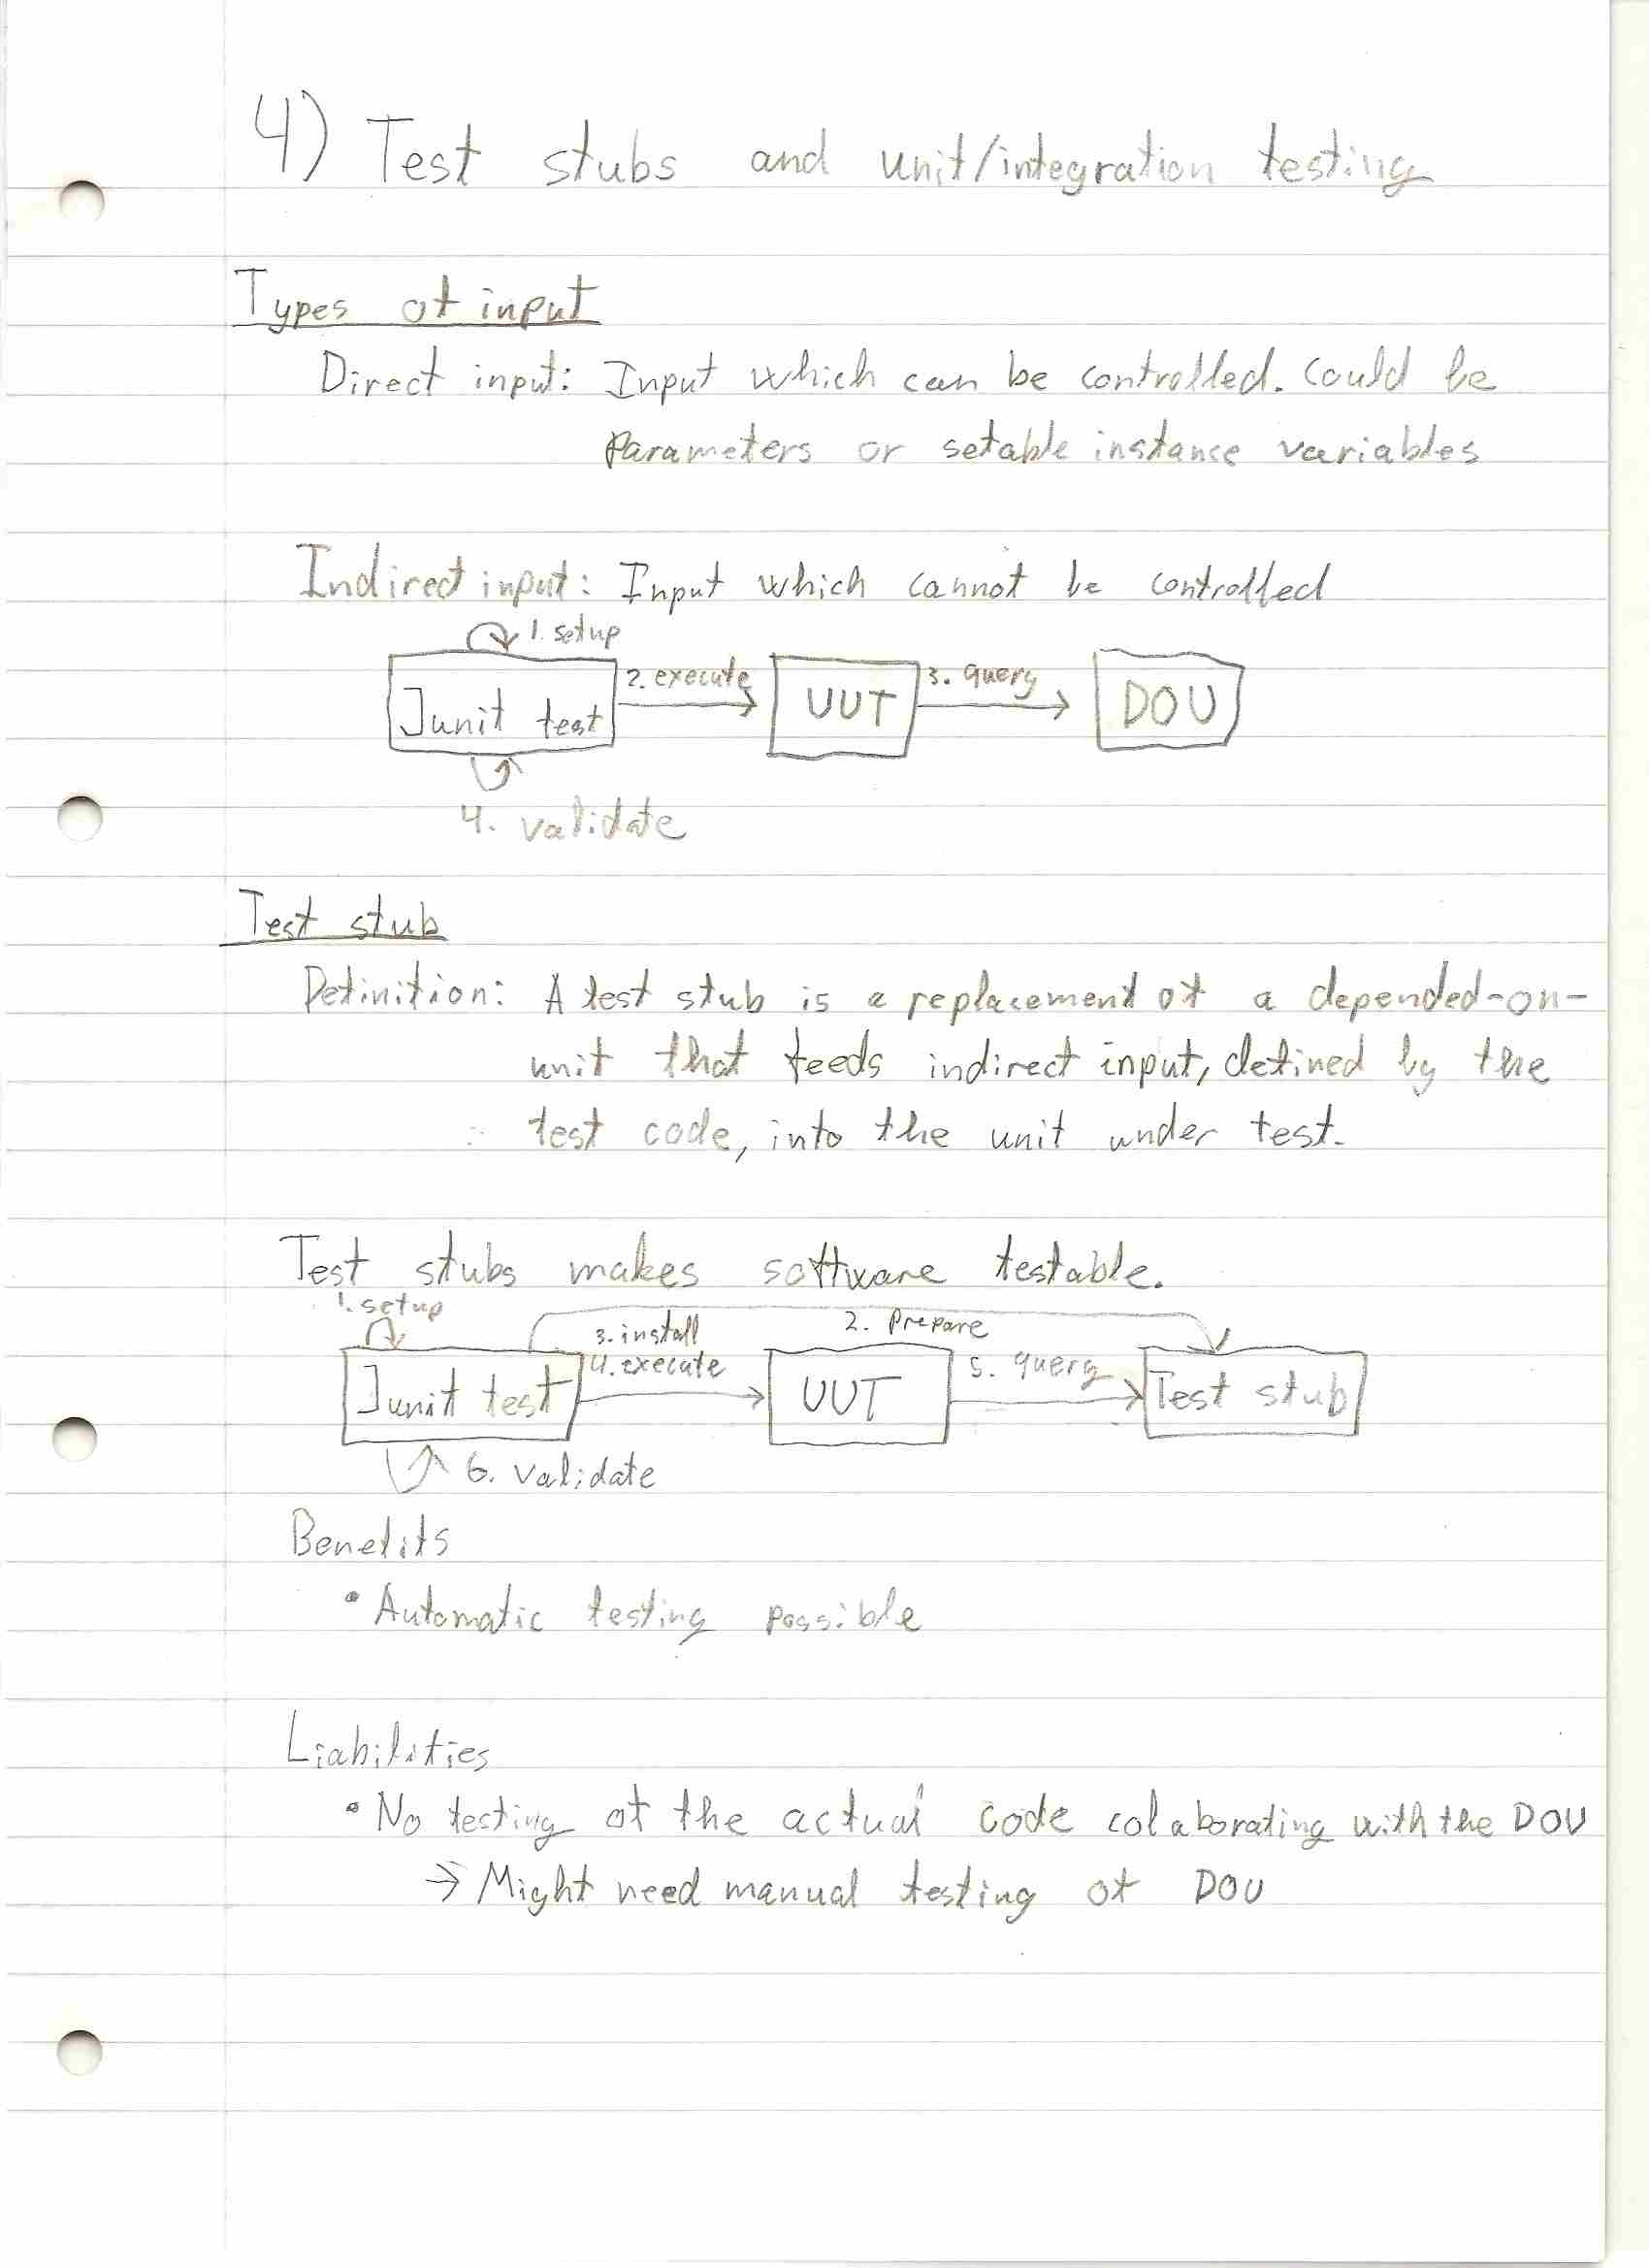 4) Test stubs and unit/integration testing
Types of input
Direct input: Input which can be controlled. Could be
parameters or setable instance variables
Indirect input: Input which cannot be controlled
1. setup
2. execute
3. query
Junit test
UUT
DOU
4. validate
Test stub
Definition: A test stub is a replacement of a depended-on-
unit that feeds indirect input, defined by the
test code, into the unit under test.
Test stubs makes software testable.
1. setup
3. install
2. Prepare
4. execute
5. query
Junit test
UUT
Test stub
6. validate
Benefits
• Automatic testing possible
Liabilities
• No testing of the actual code colaborating with the DOU
→ Might need manual testing of DOU